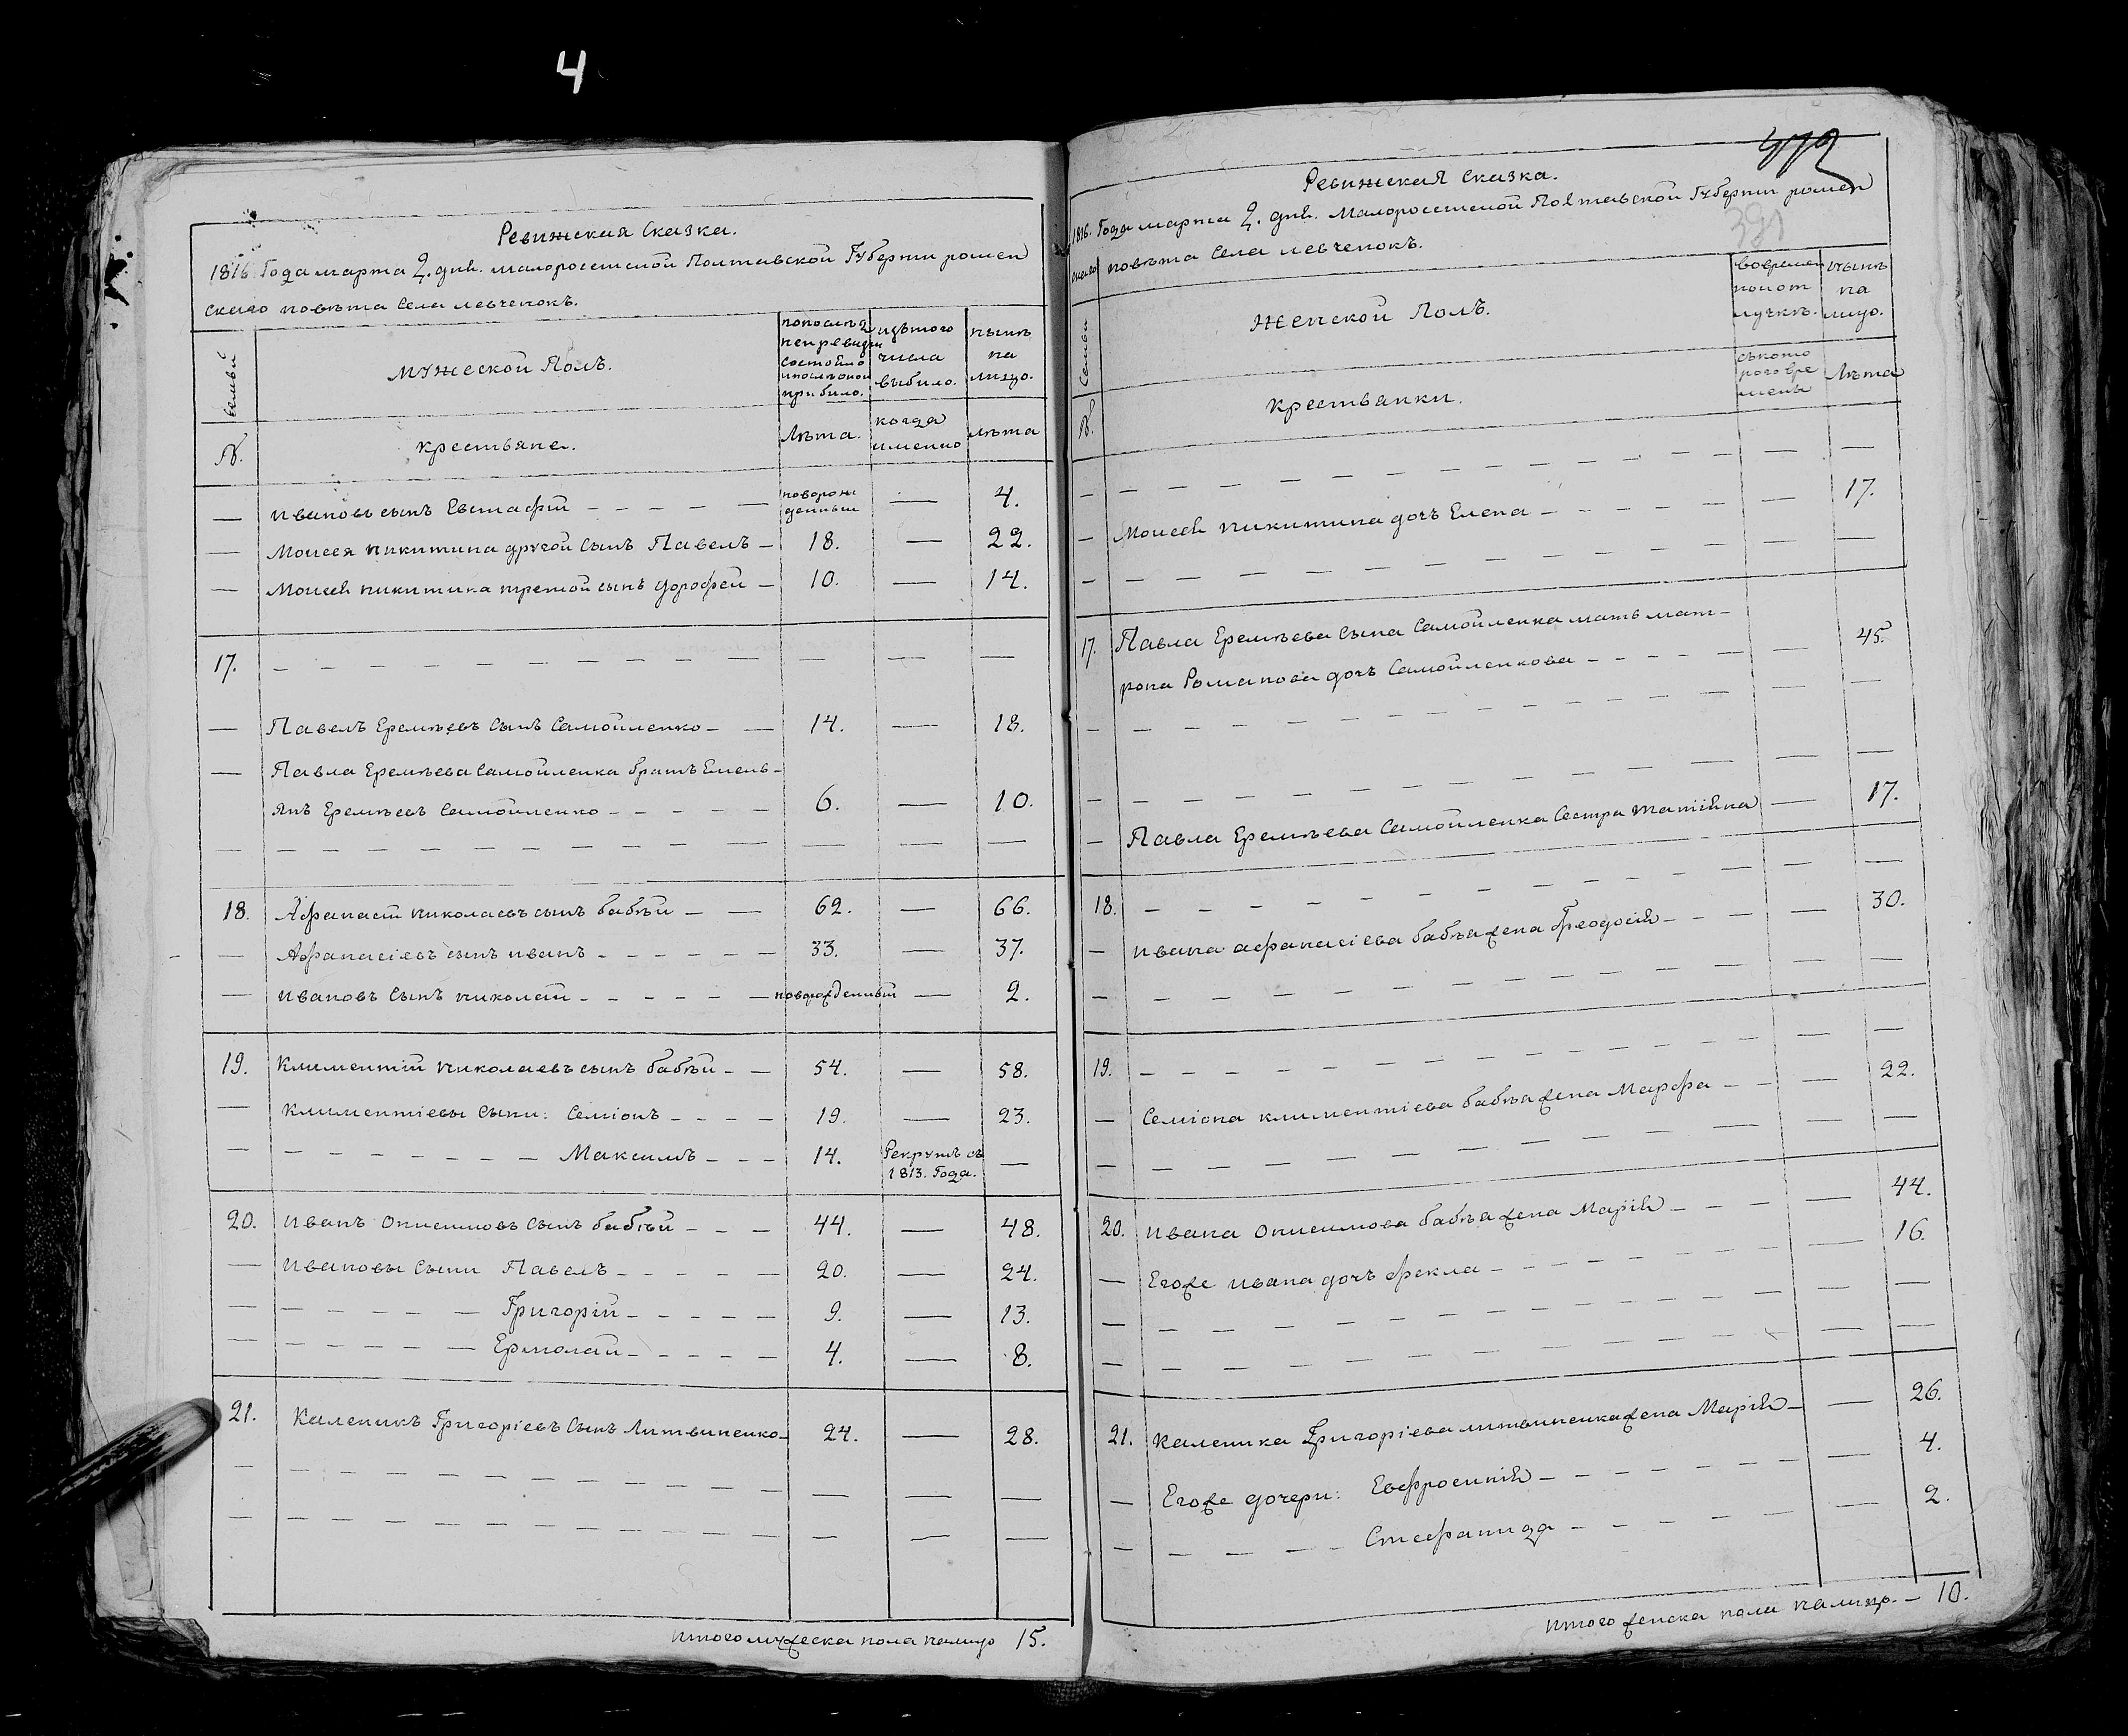 4
Ревижская Сказка.
1816 Года марта 2. дня. малоросииской Полтавской Губернии ромен
скаго повѣта Села левченокъ.
семьи
мужеской Полъ.
попослѣд
ней ревизіи
состояло
и послѣ оной
прибыло.
изътого
числа
выбыло.
нынѣ
на
лицо.
№.
крестьяне.
лѣта.
когда
именно
лѣта
— Ивановъ сынъ Евстафій — — — — — новорож
денный — 4.
— Моисея никитина другой Сынъ Павелъ — 18. — 22.
— Моисея никитина третой сынъ дорофей — 10. — 14.
17. — — — — — — — — — — — —
— Павелъ Еремѣевъ Сынъ Самойленко — — 14. — 18.
— Павла Еремѣева Самойленка братъ Емель-
янъ Еремѣевъ Самойленко — — — — — 6. — 10.
— — — — — — — — — — — — —
18. Афанасій николаевъ сынъ бабѣй — — 62. — 66.
— Афанасіевъ сынъ иванъ — — — — — — 33. — 37.
— ивановъ Сынъ николай — — — — — — новорожденный — 2.
19. Климентій николаевъ сынъ бабѣй — — 54. — 58.
— Климентіевы Сыни: Семіонъ — — — — 19. — 23.
— — — — — — — — Максимъ — — — 14. Рекрутъ съ
1813. Года. —
20. иванъ Онисимовъ Сынъ бабѣй — — — 44. — 48.
— ивановы Сыни Павелъ — — — — — 20. — 24.
— — — — — — Григорій — — — — — 9. — 13.
— — — — — — Ермолай — — — — — 4. — 8.
21. Каленикъ Григоріевъ Сынъ Литвиненко — 24. — 28.
— — — — — — — — — — — — —
— — — — — — — — — — — — —
итого мужеска пола налицо 15.
472
Ревижская Сказка.
1816. Года марта 2. дня. Малоросииской Полтавской Губернии ромен
скаго повѣта Села левченокъ.
391
Семьи
женской Полъ.
вовремен
ной от
лучкѣ.
нынѣ
на
лицо.
№.
крестьянки.
съкото
рого вре
мени
лѣта
— — — — — — — — — — — — —
— Моисея никитина дочь Елена — — — — — — 17.
— — — — — — — — — — — — —
17. Павла Еремѣева Сына Самойленка мать мат-
рона Романова дочь Самойленкова — — — — — 45.
— — — — — — — — — — — — —
— — — — — — — — — — — — —
— Павла Еремѣева Самойленка Сестра татіяна — 17.
18. — — — — — — — — — — — —
— ивана афанасіева бабѣя жена Феодосія — — — — 30.
— — — — — — — — — — — — —
19. — — — — — — — — — — — —
— Семіона климентіева бабѣя жена Марфа — — — 22.
— — — — — — — — — — — — —
20. ивана Онисимова бабѣя жена Марія — — — — 44.
— Егоже ивана дочь фекла — — — — — — 16.
— — — — — — — — — — — — —
— — — — — — — — — — — — —
21. Каленика Григоріева литвиненка жена Марія — — 26.
— Егоже дочери: Евфросинія — — — — — — — 4.
— — — — — Стефанида — — — — — — 2.
итого женска пола налицо. — 10.